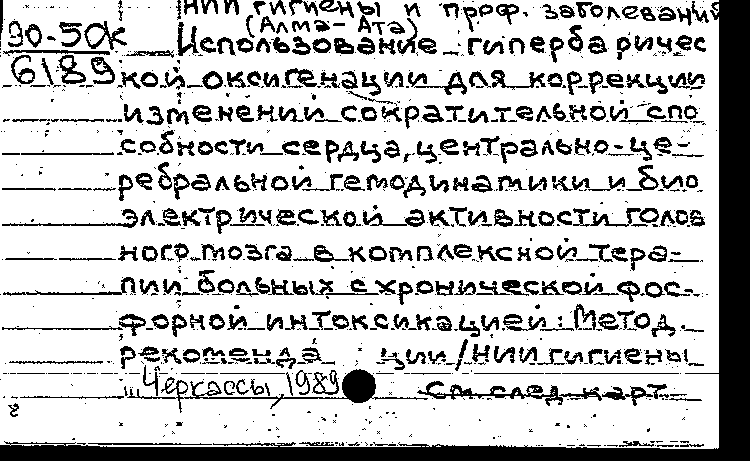 НИИ гигиены и проф. заболеваний
(Алма-Ата)
90-50к Использование гипербаричес
6189 кой оксигенации для коррекции
изменений сократительной спо
собности сердца, центрально-це-
ребральной гемодинамики и био
электрической активности голов
ного мозга в комплексной тера-
пии больных с хронической фос-
форной интоксикацией: Метод.
рекомендации / НИИ гигиены
...Черкассы, 1989 см след карт